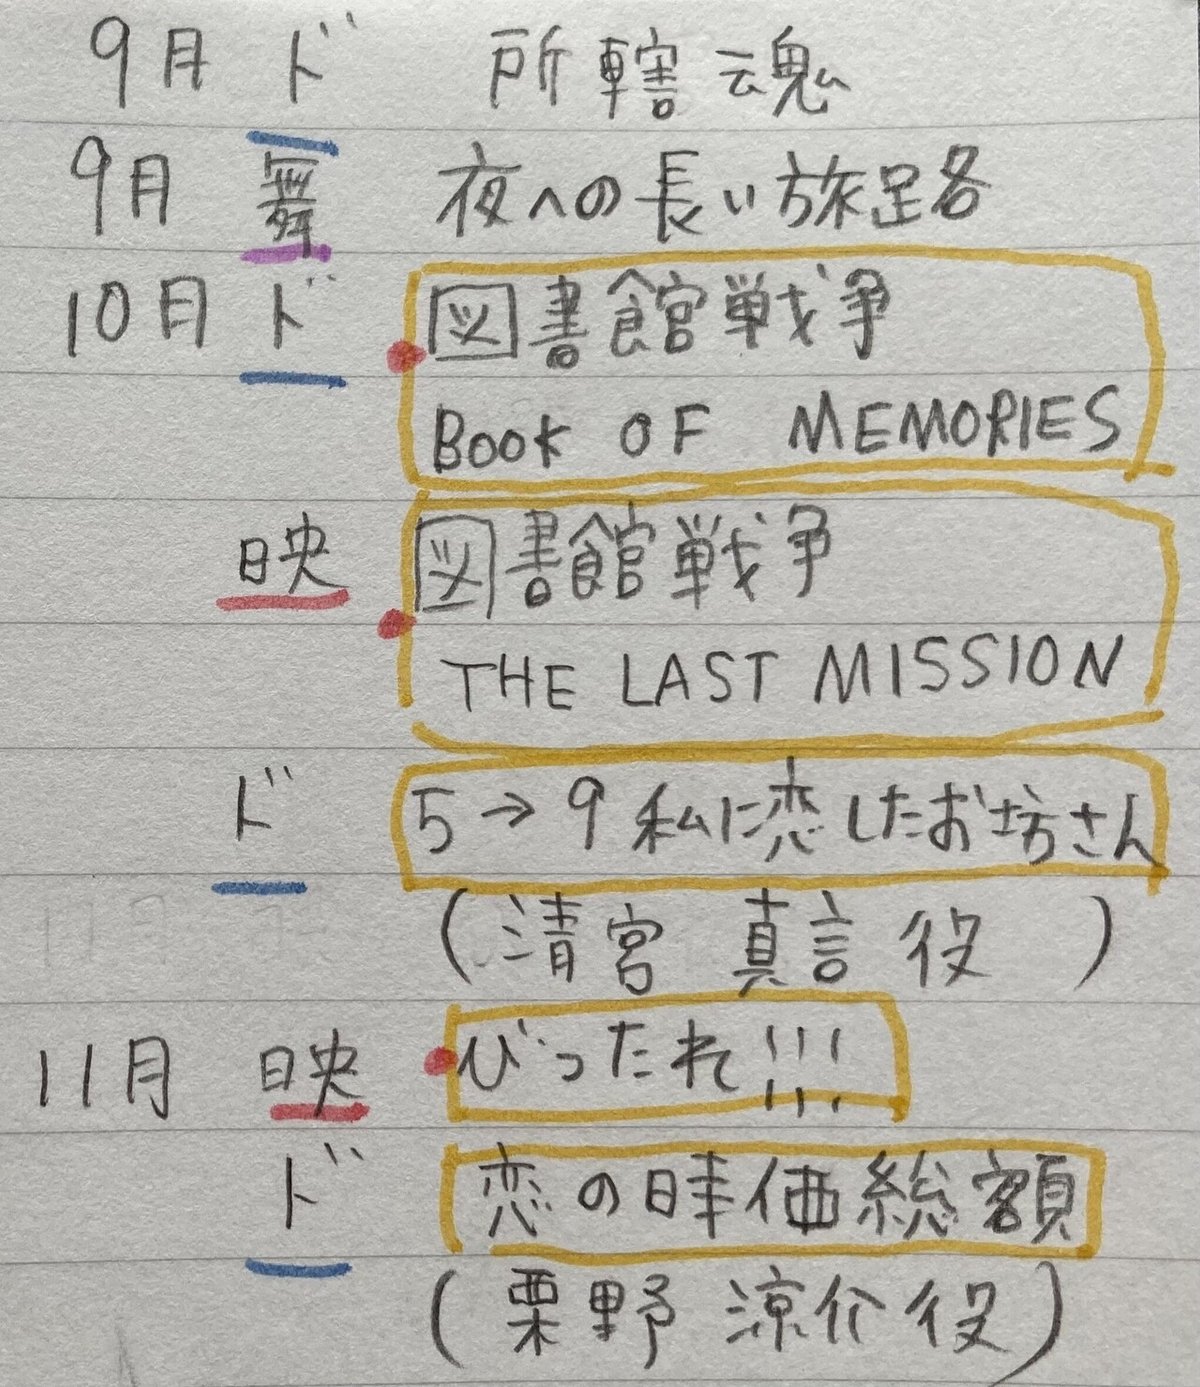 9月 ド 所轄魂
9月 舞 夜への長い旅路
10月 ド 図書館戦争
BOOK OF MEMORIES
映 図書館戦争
THE LAST MISSION
ド 5→9 私に恋したお坊さん
(清宮 真言 役 )
11月 映 びったれ!!!
ド 恋の時価総額
(栗野 涼介役)